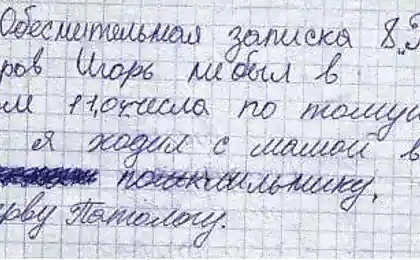 Обеснительная записка 8 "З
ров Игорь небыл в
м 11,04 числа по тому
я ходил с мамой в
полильнику,
рву Патологу.